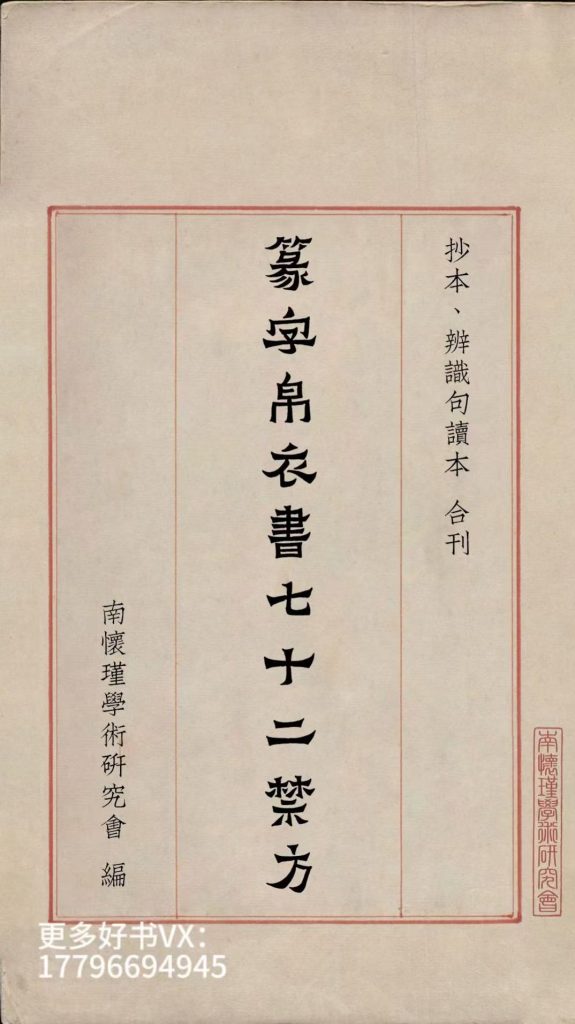 抄本、辨識句讀本 合刊
篆字帛衣書七十二禁方
南懷瑾學術研究會 編
南懷瑾學術研究會
更多好书VX：
17796694945